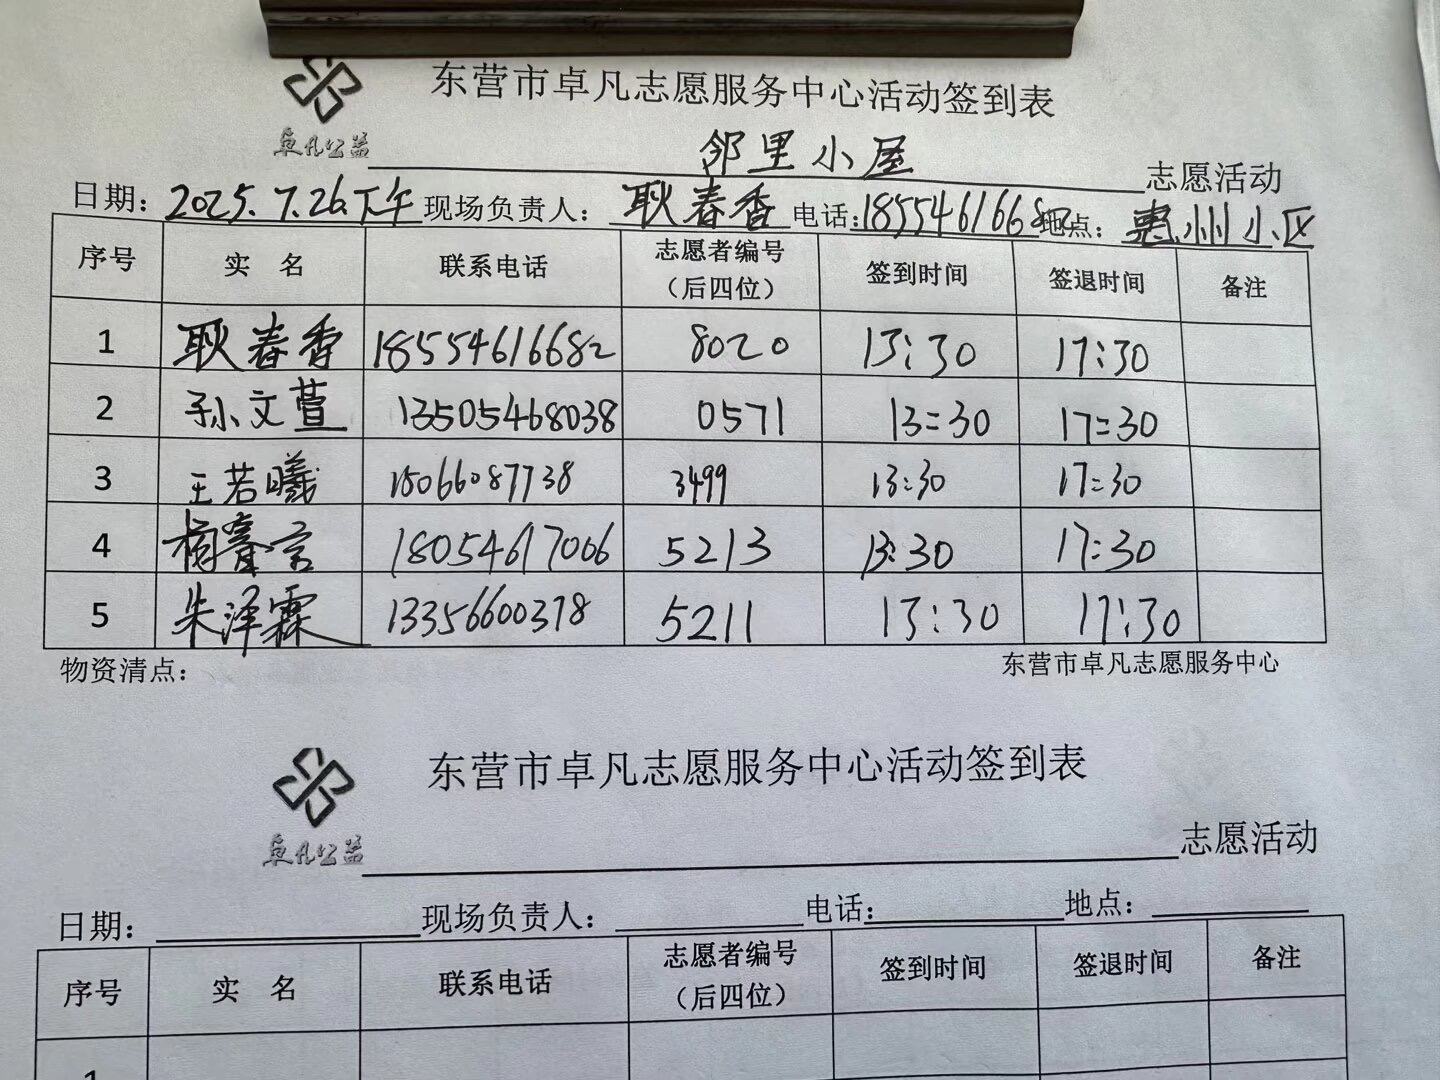 东营市卓凡志愿服务中心活动签到表
卓凡公益
邻里小屋 志愿活动
日期：2025.7.26.下午 现场负责人：耿春香 电话：18554616682 地点：惠州小区
序号 实 名 联系电话 志愿者编号（后四位） 签到时间 签退时间 备注
1 耿春香 18554616682 8020 13:30 17:30
2 孙文萱 13505468038 0571 13=30 17=30
3 王若曦 15066087738 3499 13:30 17:30
4 18054617066 5213 13:30 17:30
5 朱泽霖 13356600378 5211 13:30 17:30
物资清点： 东营市卓凡志愿服务中心
东营市卓凡志愿服务中心活动签到表
卓凡公益
志愿活动
日期： 现场负责人： 电话： 地点：
序号 实 名 联系电话 志愿者编号（后四位） 签到时间 签退时间 备注
1